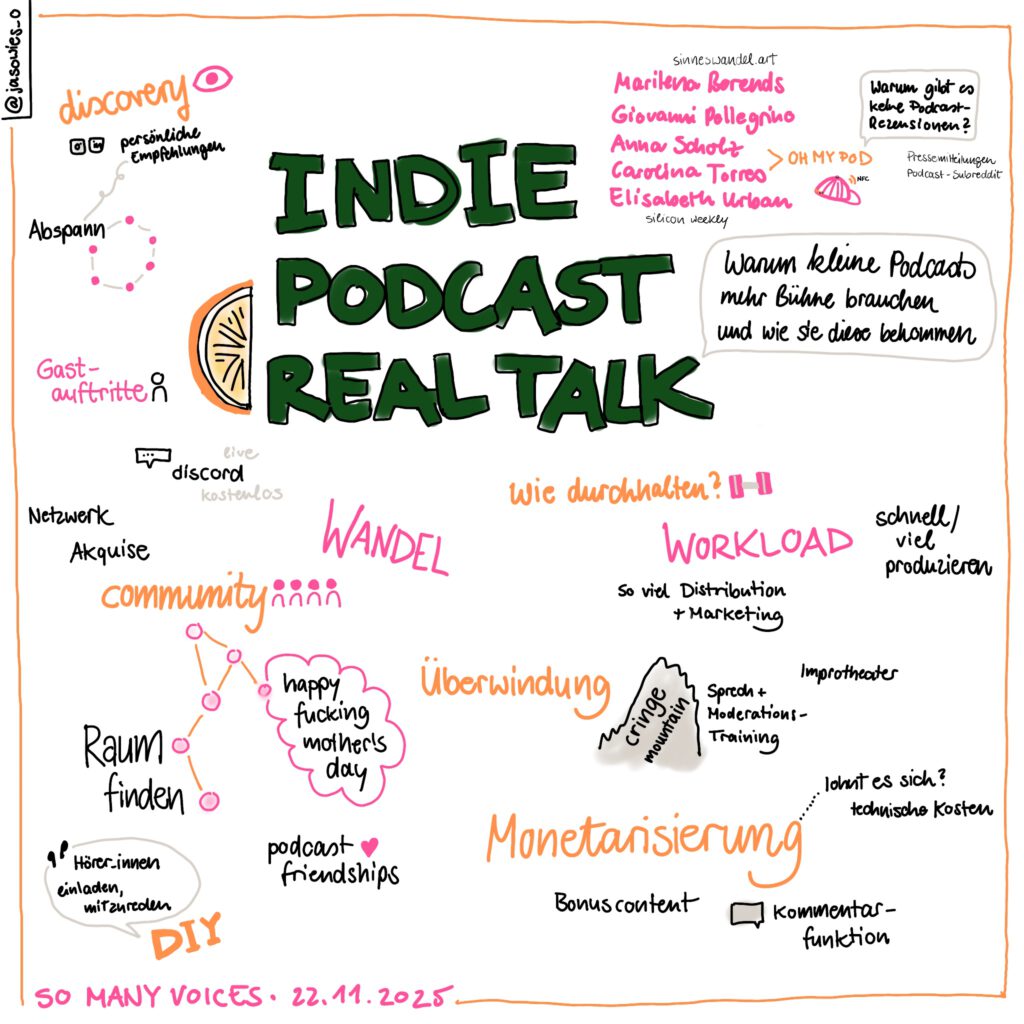 @jasowies_o
discovery
persönliche
Empfehlungen
Abspann
Gast-
auftritte
INDIE
PODCAST
REAL TALK
sinneswandel.art
Marilena Berends
Giovanni Pellegrino
Anna Scholz
Carolina Torres
Elisabeth Urban
silicon weekly
OH MY POD
NFC
Warum gibt es
keine Podcast-
Rezensionen?
Pressemitteilungen
Podcast-Subreddit
Warum kleine Podcasts
mehr Bühne brauchen
und wie sie diese bekommen
live
discord
kostenlos
Netzwerk
Akquise
WANDEL
community
Raum
finden
happy
fucking
mother's
day
Hörer_innen
einladen,
mitzureden
DIY
podcast
friendships
Wie durchhalten?
WORKLOAD
schnell/
viel
produzieren
So viel Distribution
+ Marketing
Überwindung
cringe
mountain
Sprech +
Moderations-
Training
Improtheater
Monetarisierung
lohnt es sich?
technische Kosten
Bonuscontent
Kommentar-
funktion
SO MANY VOICES · 22.11.2025